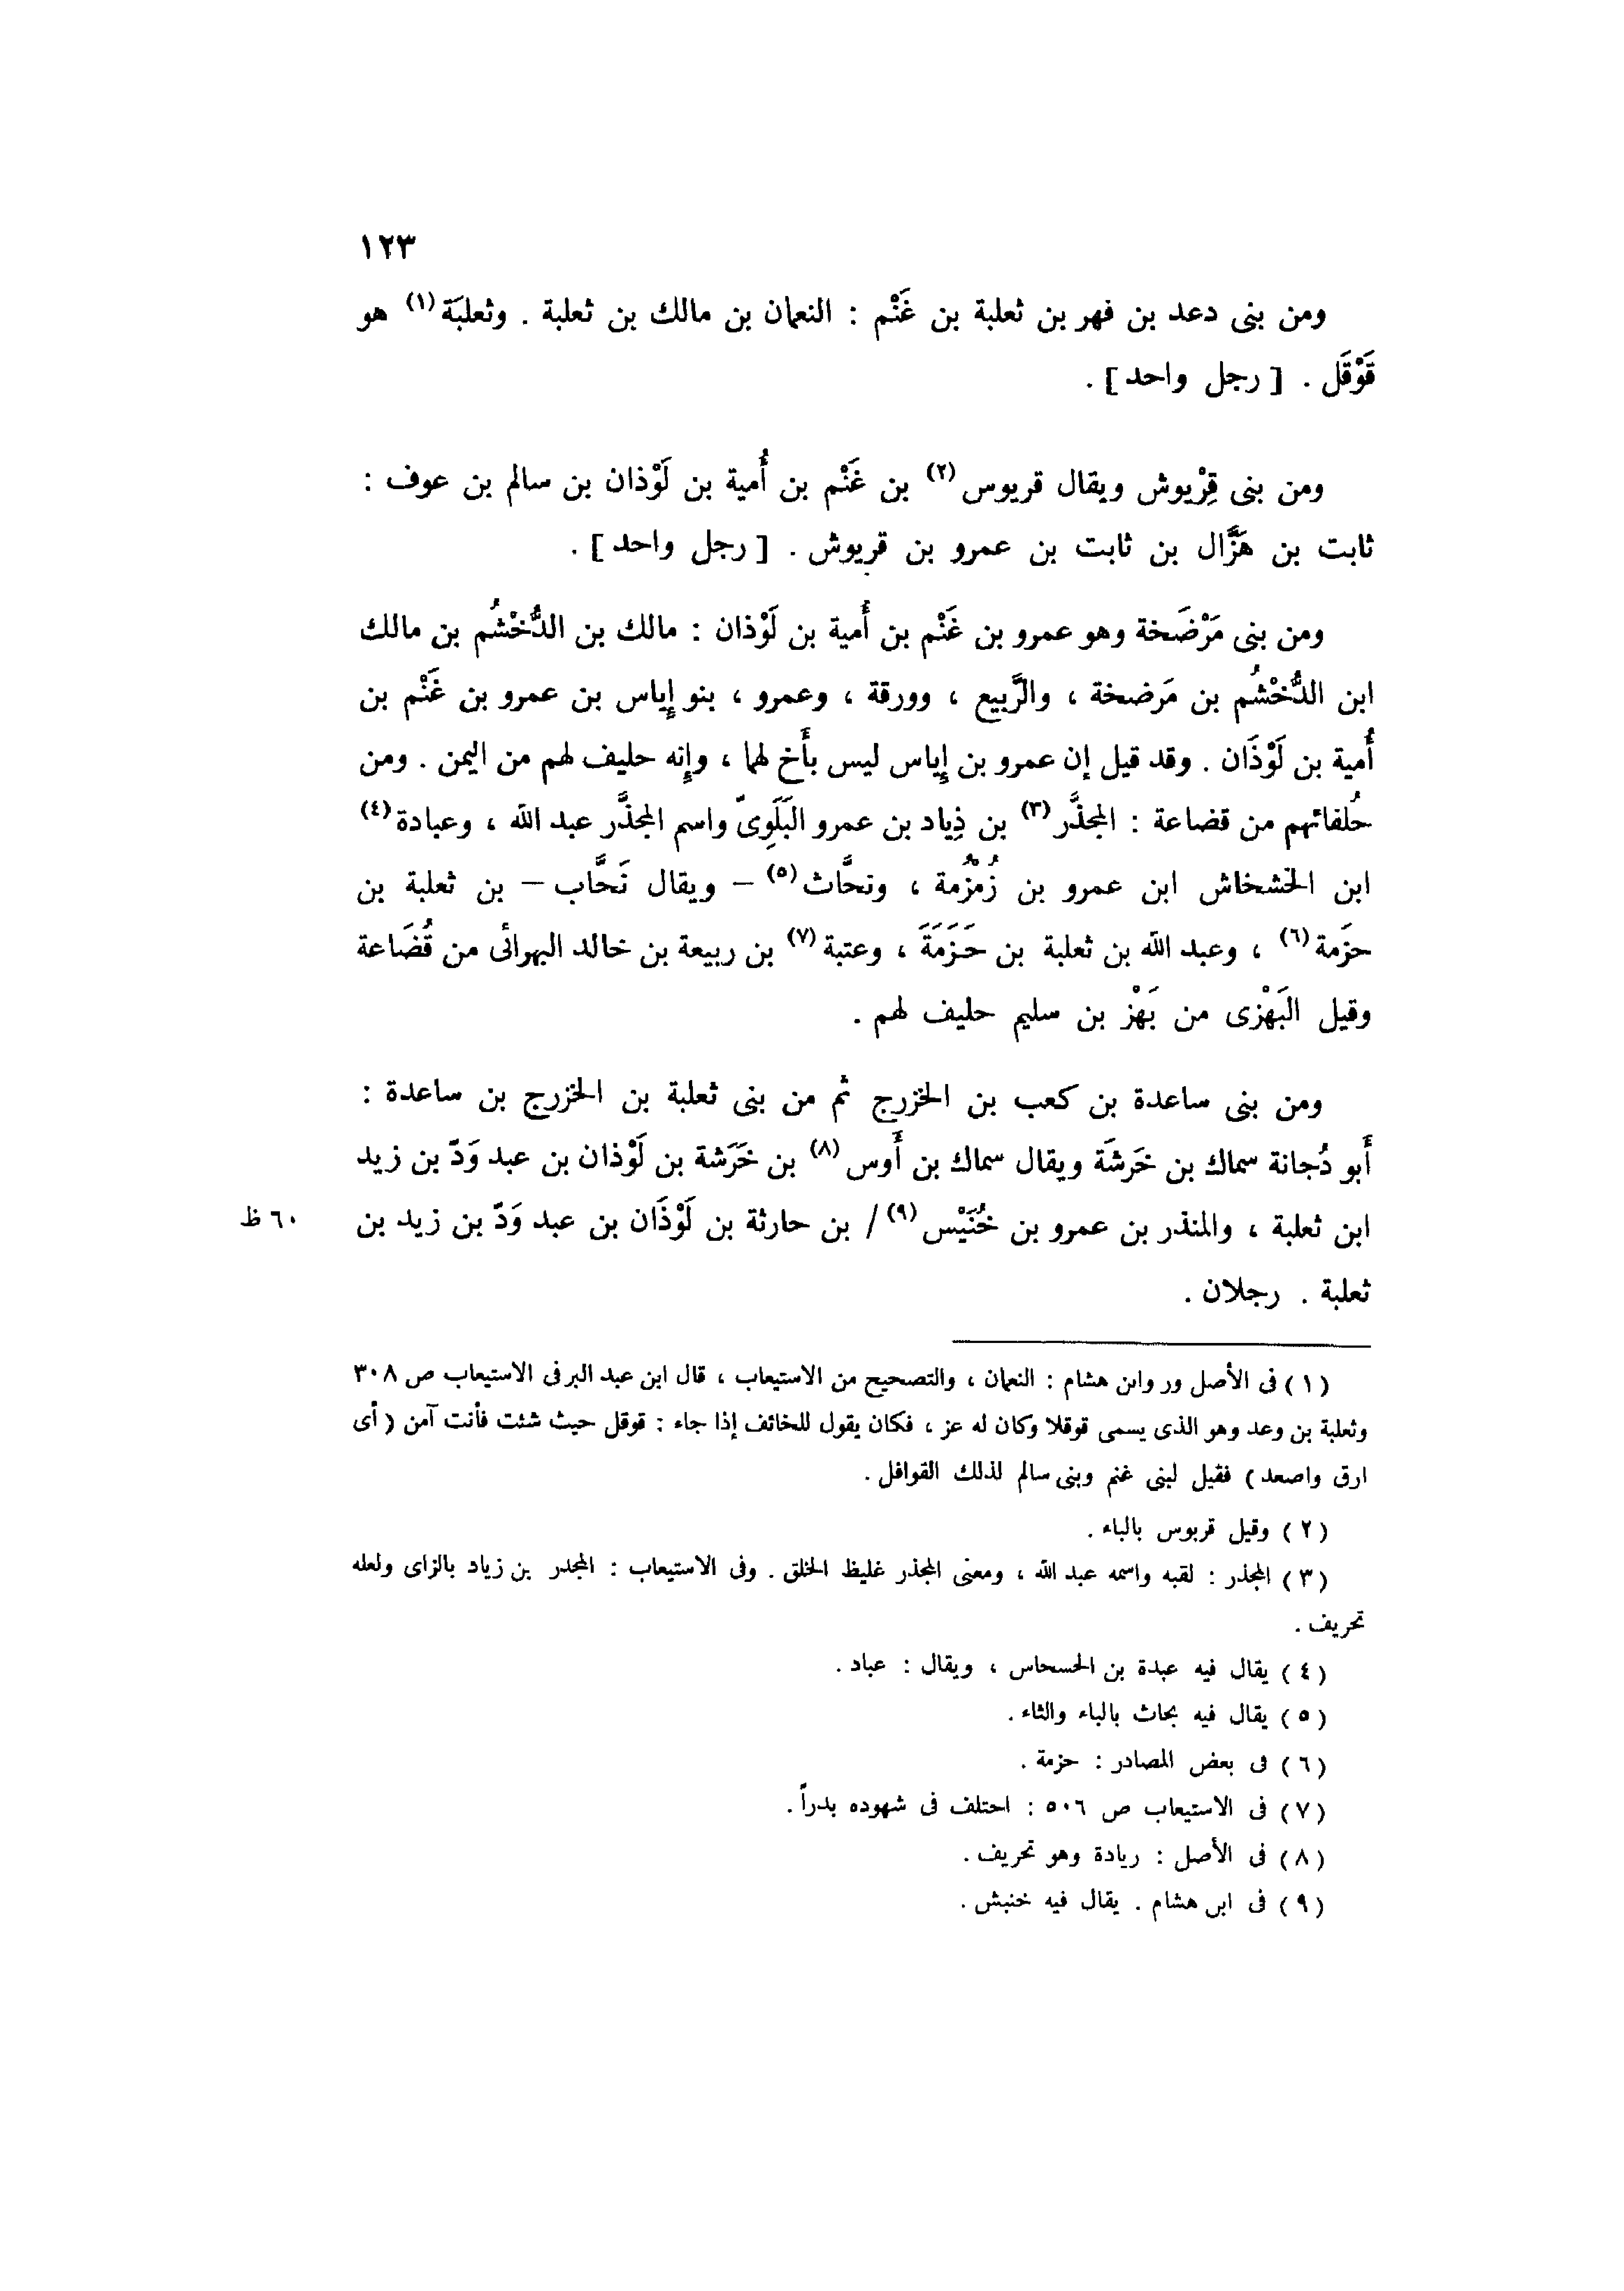 ١٢٣
ومن بنى دعد بن فهر بن ثعلبة بن غَنْم : النعمان بن مالك بن ثعلبة . وثعلبَة (١) هو
قَوْقَل . [ رجل واحد ] .
ومن بنى قِرْيوش ويقال قريوس (٢) بن غَنْم بن أُمية بن لَوْذان بن سالم بن عوف :
ثابت بن هَزَّال بن ثابت بن عمرو بن قريوش . [ رجل واحد ] .
ومن بنى مَرْضَخة وهو عمرو بن غَنْم بن أُمية بن لَوْذان : مالك بن الدُّخْشُم بن مالك
ابن الدُّخْشُم بن مَرضخة ، والرَّبيع ، وورقة ، وعمرو ، بنو إِياس بن عمرو بن غَنْم بن
أُمية بن لَوْذَان . وقد قيل إن عمرو بن إِياس ليس بأَخ لهما ، وإِنه حليف لهم من اليمن . ومن
حُلفائهم من قضاعة : المجذَّر (٣) بن ذِياد بن عمرو البَلَوِىّ واسم المجذَّر عبد الله ، وعبادة (٤)
ابن الخشخاش ابن عمرو بن زُمْزُمة ، ونحَّاث (٥) – ويقال نَحَّاب – بن ثعلبة بن
حزَمة (٦) ، وعبد الله بن ثعلبة بن حَـزَمَةَ ، وعتبة (٧) بن ربيعة بن خالد البهرائى من قُضَاعة
وقيل البَهْزى من بَهْز بن سليم حليف لهم .
ومن بنى ساعدة بن كعب بن الخزرج ثم من بنى ثعلبة بن الخزرج بن ساعدة :
أَبو دُجانة سماك بن خَرشَة ويقال سماك بن أَوس (٨) بن خَرَشة بن لَوْذان بن عبد وَدّ بن زيد
ابن ثعلبة ، والمنذر بن عمرو بن خُنَيْس (٩) / بن حارثة بن لَوْذَان بن عبد وَدّ بن زيد بن ٦٠ ظ
ثعلبة . رجلان .
(١) فى الأصل ور وابن هشام : النعمان ، والتصحيح من الاستيعاب ، قال ابن عبد البر فى الاستيعاب ص ٣٠٨
وثعلبة بن وعد وهو الذى يسمى قوقلا وكان له عز ، فكان يقول للخائف إذا جاء : قوقل حيث شئت فأنت آمن ( أى
ارق واصعد ) فقيل لبنى غنم وبنى سالم لذلك القوافل .
(٢) وقيل قربوس بالباء .
(٣) المجذر : لقبه واسمه عبد الله ، ومعنى المجذر غليظ الخلق . وفى الاستيعاب : المجدر بن زياد بالزاى ولعله
تحريف .
(٤) يقال فيه عبدة بن الحسحاس ، ويقال : عباد .
(٥) يقال فيه بحاث بالباء والثاء .
(٦) فى بعض المصادر : حزمة .
(٧) فى الاستيعاب ص ٥٠٦ : احتلف فى شهوده بدراً .
(٨) فى الأصل : ريادة وهو تحريف .
(٩) فى ابن هشام . يقال فيه خنبش .